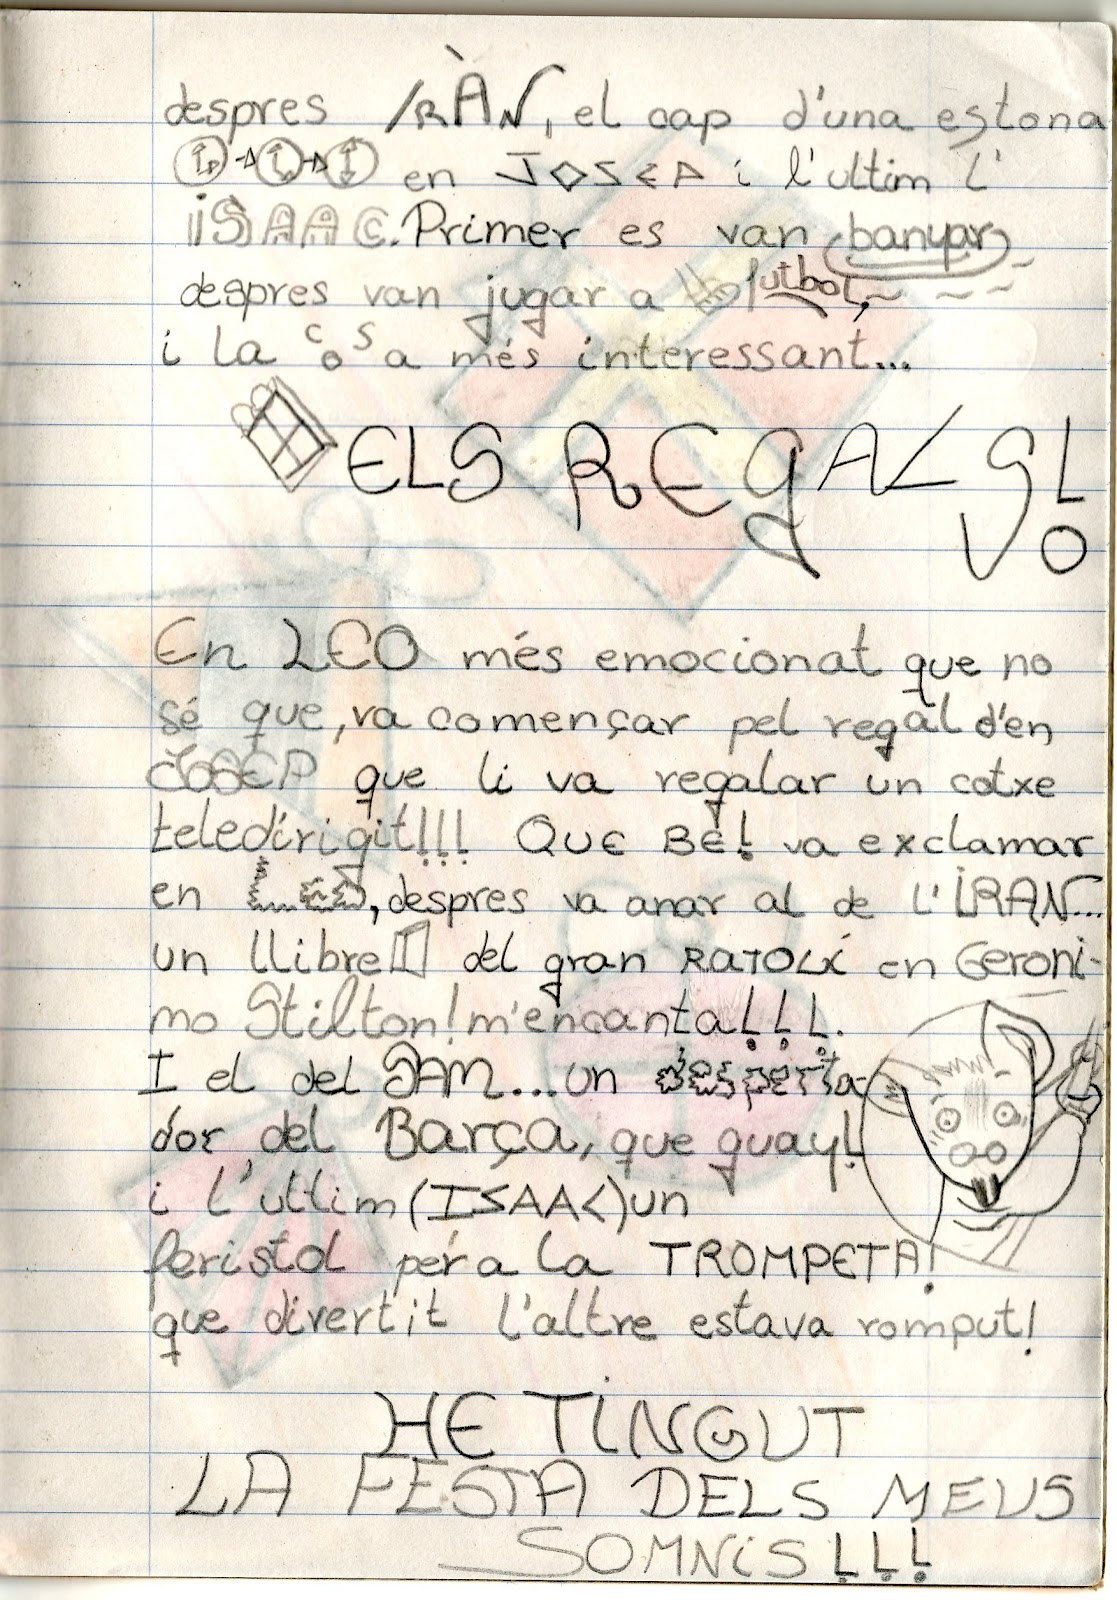 despres IRÀN, el cap d'una estona
en JOSEP i l'ultim l'
ISAAC. Primer es van banyar
despres van jugar a futbol,
i la cosa més interessant...
ELS REGALS!
En LEO més emocionat que no
sé que, va començar pel regal d'en
JOSEP que li va regalar un cotxe
teledirigit!!! QUE BE! va exclamar
en LEO, despres va anar al de l'IRAN...
un llibre del gran RATOLÍ en Geroni-
mo Stilton! m'encanta!!!.
I el del JAM... un desperta-
dor del Barça, que guay!
i l'ultim (ISAAC) un
feristol per a la TROMPETA!
que divertit l'altre estava romput!
HE TINGUT
LA FESTA DELS MEUS
SOMNIS!!!